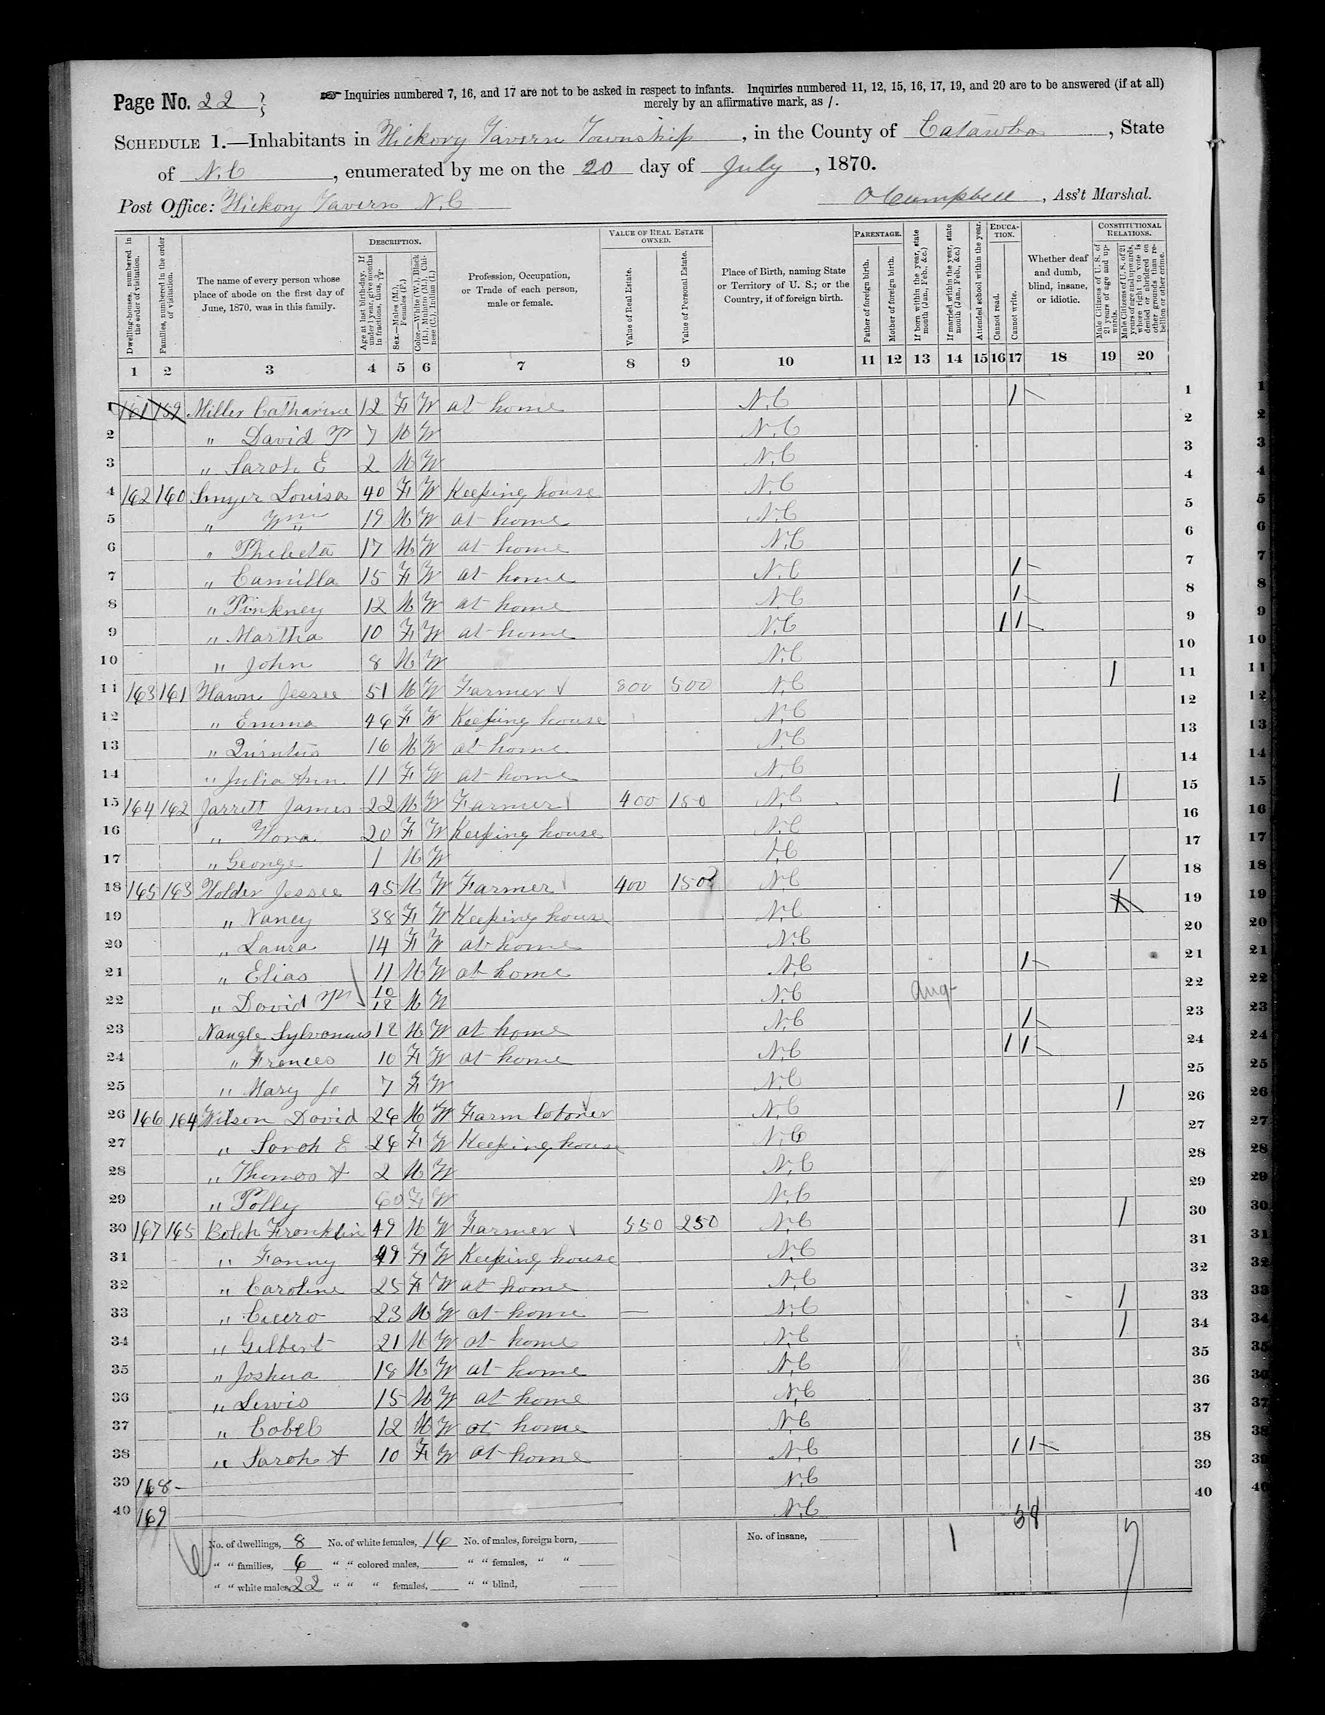 Page No. 22
☞ Inquiries numbered 7, 16, and 17 are not to be asked in respect to infants. Inquiries numbered 11, 12, 15, 16, 17, 19, and 20 are to be answered (if at all)
merely by an affirmative mark, as /.
SCHEDULE 1.—Inhabitants in Hickory Tavern Township, in the County of Catawba, State
of N.C, enumerated by me on the 20 day of July, 1870.
Post Office: Hickory Tavern N.C
O Campbell, Ass't Marshal.
DESCRIPTION. VALUE OF REAL ESTATE OWNED. PARENTAGE. EDUCATION. CONSTITUTIONAL RELATIONS.
Dwelling-houses, numbered in the order of visitation.
Families, numbered in the order of visitation.
The name of every person whose place of abode on the first day of June, 1870, was in this family.
Age at last birth-day. If under 1 year, give months in fractions, thus, 3/12.
Sex.—Males (M.), Females (F.)
Color.—White (W.), Black (B.), Mulatto (M.), Chinese (C.), Indian (I.)
Profession, Occupation, or Trade of each person, male or female.
Value of Real Estate.
Value of Personal Estate.
Place of Birth, naming State or Territory of U. S.; or the Country, if of foreign birth.
Father of foreign birth.
Mother of foreign birth.
If born within the year, state month (Jan., Feb., &c.)
If married within the year, state month (Jan., Feb., &c.)
Attended school within the year.
Cannot read.
Cannot write.
Whether deaf and dumb, blind, insane, or idiotic.
Male Citizens of U. S. of 21 years of age and upwards.
Male Citizens of U. S. of 21 years of age and upwards, whose right to vote is denied or abridged on other grounds than rebellion or other crime.
1 2 3 4 5 6 7 8 9 10 11 12 13 14 15 16 17 18 19 20
1 161 159 Miller Catharine 12 F W at home N.C 1 1
2 " David P 7 M W N.C 2
3 " Sarah E 2 M W N.C 3
4 162 160 Smyer Louisa 40 F W Keeping house N.C 4
5 " Wm 19 M W at home N.C 5
6 " Philecta 17 M W at home N.C 6
7 " Camilla 15 F W at home N.C 1 7
8 " Pinkney 12 M W at home N.C 1 8
9 " Martha 10 F W at home N.C 1 1 9
10 " John 8 M W N.C 10
11 163 161 Hawn Jessee 51 M W Farmer 800 500 N.C 1 11
12 " Emma 46 F W Keeping house N.C 12
13 " Quintus 16 M W at home N.C 13
14 " Julia Ann 11 F W at home N.C 14
15 164 162 Jarrett James 22 M W Farmer 400 150 N.C 1 15
16 " Nora 20 F W Keeping house N.C 16
17 " George 1 M W N.C 17
18 165 163 Holder Jessee 45 M W Farmer 400 150 N.C 1 18
19 " Nancy 38 F W Keeping house N.C 19
20 " Laura 14 F W at home N.C 20
21 " Elias 11 M W at home N.C 1 21
22 " David P 10/12 M W N.C Aug 22
23 Naugle Sylvanus 12 M W at home N.C 1 23
24 " Frances 10 F W at home N.C 1 1 24
25 " Mary Jo 7 F W N.C 25
26 166 164 Wilson David 26 M W Farm laborer N.C 1 26
27 " Sarah E 26 F W Keeping house N.C 27
28 " Thomas A 2 M W N.C 28
29 " Polly 60 F W N.C 29
30 167 165 Bolch Franklin 49 M W Farmer 550 250 N.C 1 30
31 " Fanny 49 F W Keeping house N.C 31
32 " Caroline 25 F W at home N.C 32
33 " Cicero 23 M W at home N.C 1 33
34 " Gilbert 21 M W at home N.C 1 34
35 " Joshua 18 M W at home N.C 35
36 " Lewis 15 M W at home N.C 36
37 " Cobel 12 M W at home N.C 37
38 " Sarah A 10 F W at home N.C 1 1 38
39 168 N.C 39
40 169 N.C 40
No. of dwellings, 8 No. of white females, 16 No. of males, foreign born, No. of insane, 1 7
" " families, 6 " " colored males, " " females, " "
" " white males, 22 " " " females, " " blind,